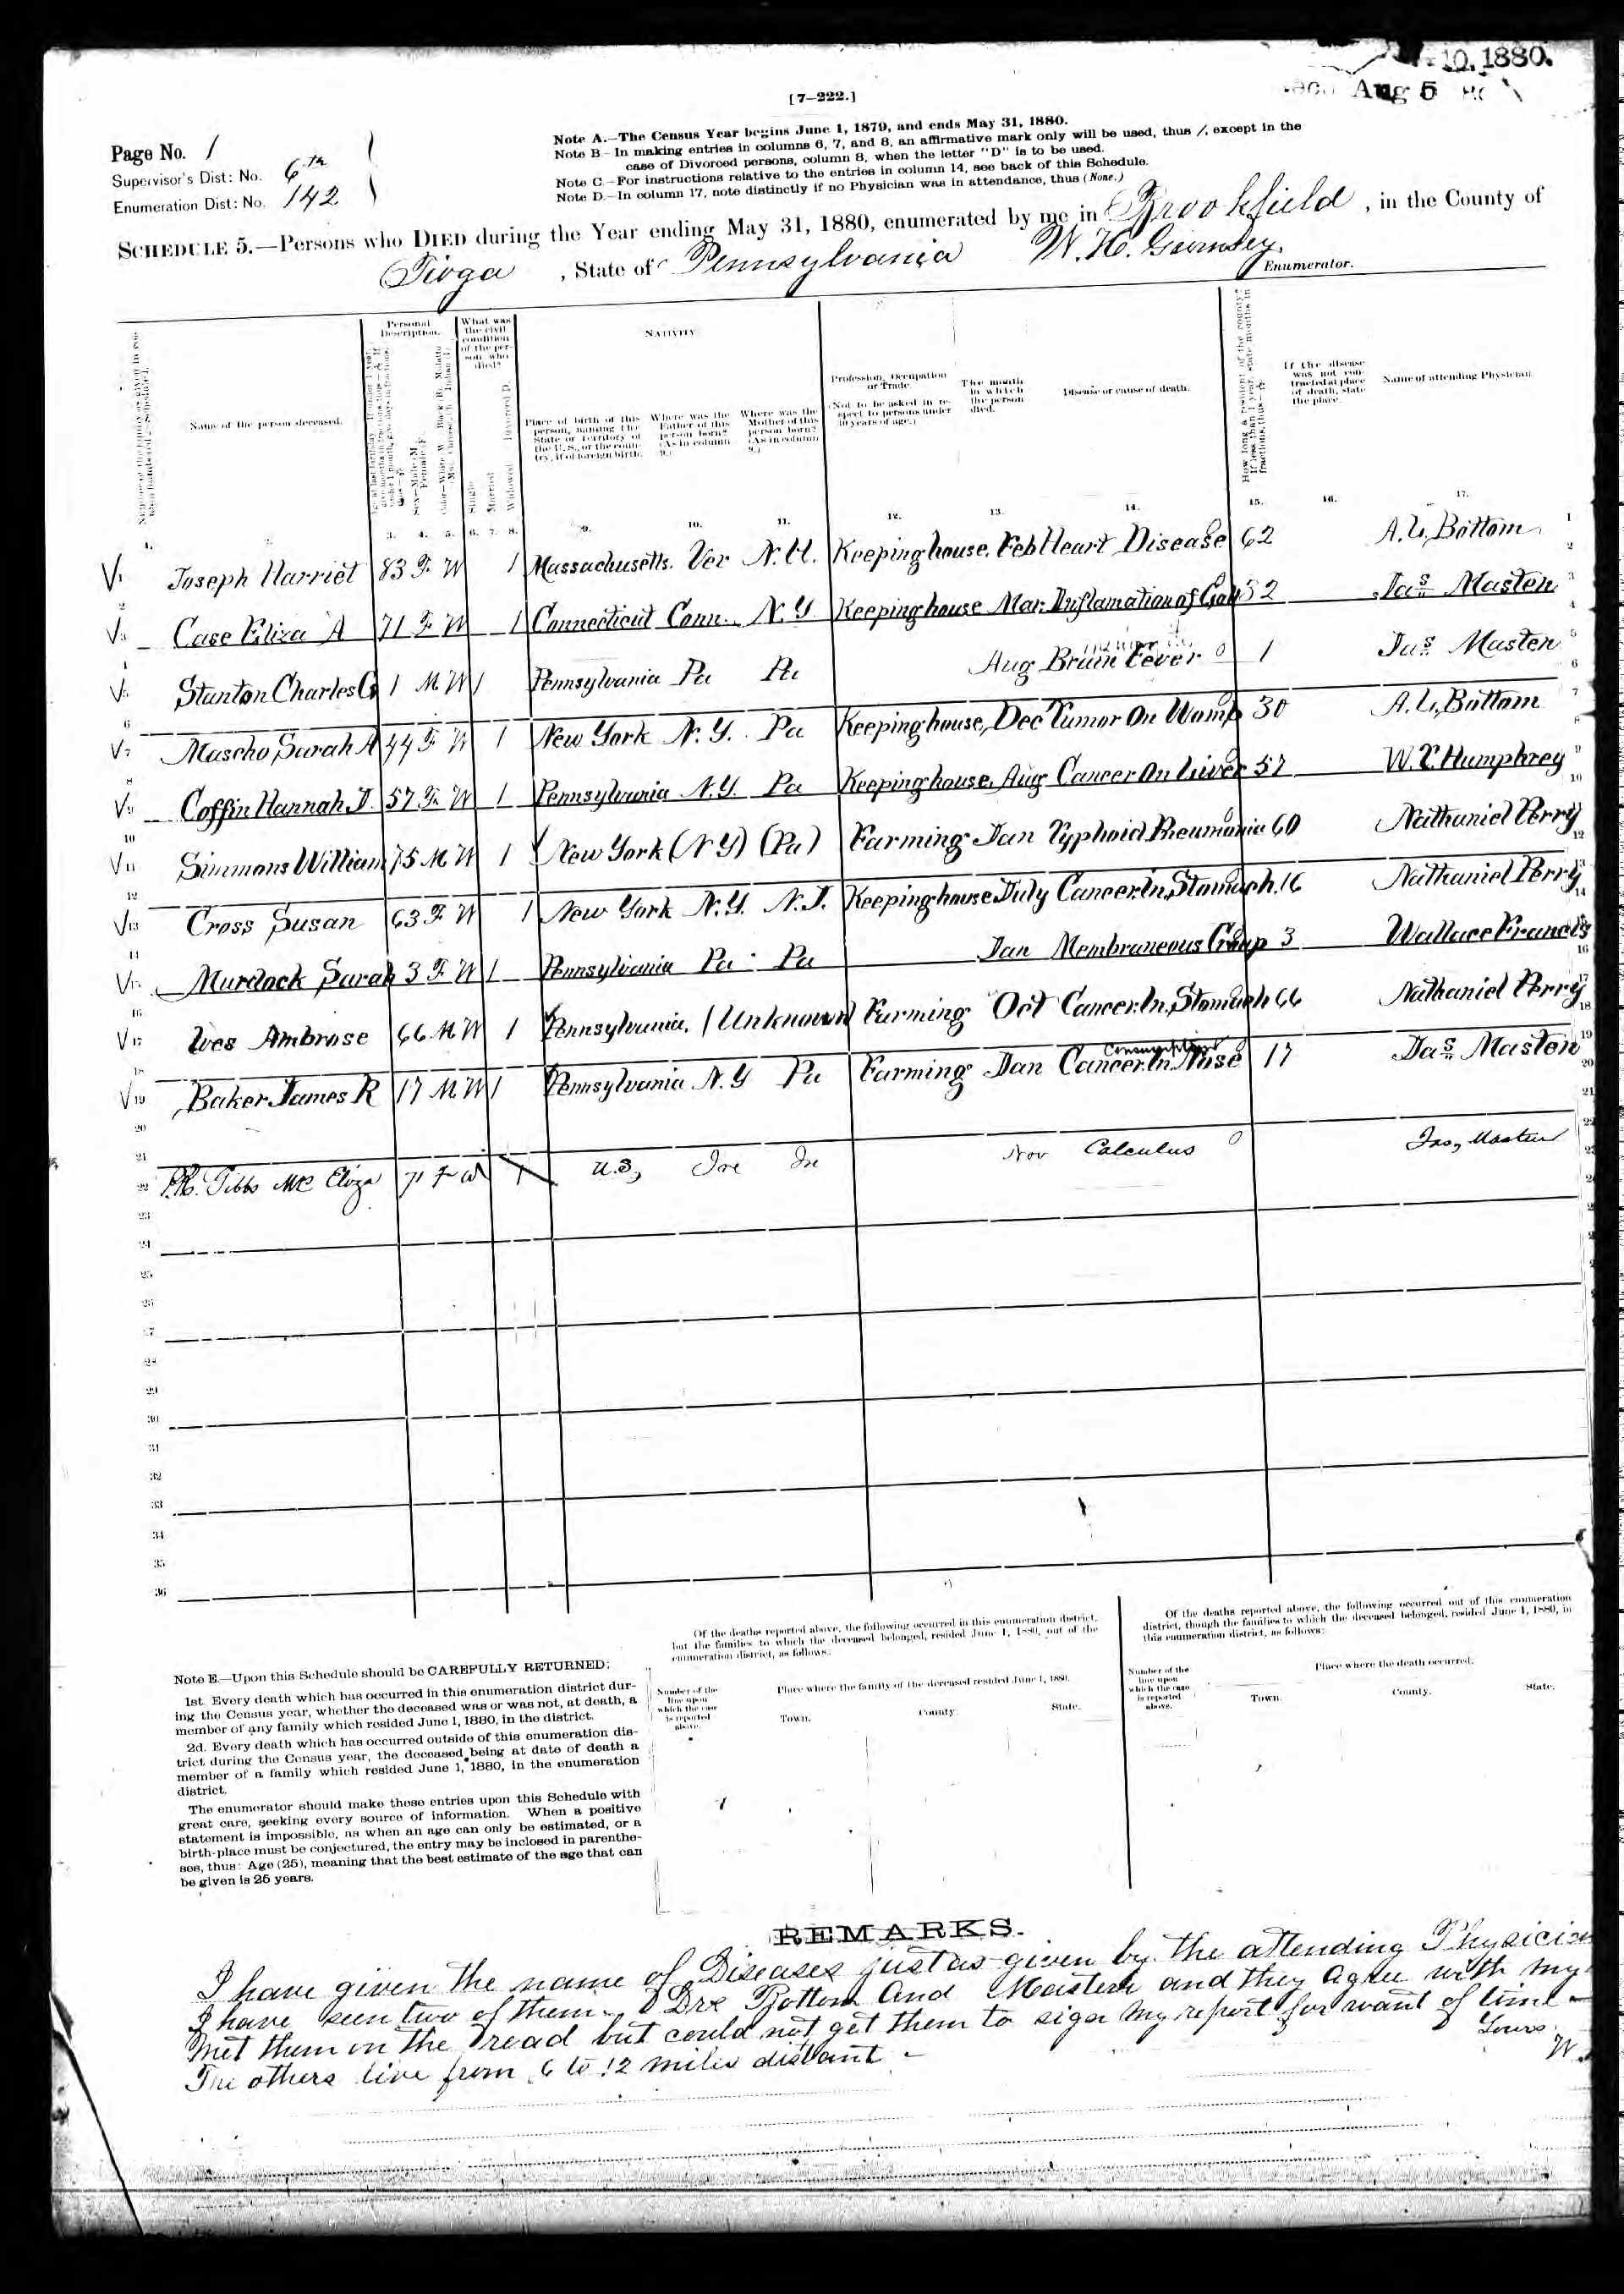 10. 1880.
Aug 5
[7-222.]
Page No. 1
Supervisor's Dist: No. 6th
Enumeration Dist: No. 142
Note A.—The Census Year begins June 1, 1879, and ends May 31, 1880.
Note B.—In making entries in columns 6, 7, and 8, an affirmative mark only will be used, thus /, except in the
case of Divorced persons, column 8, when the letter "D" is to be used.
Note C.—For instructions relative to the entries in column 14, see back of this Schedule.
Note D.—In column 17, note distinctly if no Physician was in attendance, thus (None.)
SCHEDULE 5.—Persons who DIED during the Year ending May 31, 1880, enumerated by me in Brookfield, in the County of
Tioga, State of Pennsylvania W. H. Gurnsey.
Enumerator.
Name of the person deceased.
Personal Description.
What was the civil condition of the person who died?
Single
Married
Widowed Divorced D.
NATIVITY
Place of birth of this person, naming the State or Territory of the U. S., or the country, if of foreign birth.
Where was the Father of this person born? (As in column 9.)
Where was the Mother of this person born? (As in column 9.)
Profession, Occupation or Trade. (Not to be asked in respect to persons under 10 years of age.)
The month in which the person died.
Disease or cause of death.
How long a resident of the county? If less than 1 year, state months in fractions, thus—
If the disease was not contracted at place of death, state the place.
Name of attending Physician.
1. 3. 4. 5. 6. 7. 8. 9. 10. 11. 12. 13. 14. 15. 16. 17.
1 Joseph Harriet 83 F W 1 Massachusetts. Ver N.H. Keeping house. Feb Heart Disease 62 A. L. Bottom
3 Case Eliza A 71 F W 1 Connecticut Conn. N.Y. Keeping house Mar. Inflamation of 52 Jas Masten
5 Stanton Charles G 1 M W 1 Pennsylvania Pa Pa Aug Brain Fever 1 Jas Masten
7 Mascho Sarah A 44 F W 1 New York N.Y. Pa Keeping house, Dec Tumor On Womb 30 A. L. Bottom
9 Coffin Hannah D. 57 F W 1 Pennsylvania N.Y. Pa Keeping house, Aug Cancer On Liver 57 W. T. Humphrey
11 Simmons William 75 M W 1 New York (N Y) (Pa) Farming Jan Typhoid Pneumonia 60 Nathaniel Perry
13 Cross Susan 63 F W 1 New York N.Y. N.J. Keeping house July Cancer. In, Stomach. 16 Nathaniel Perry
15 Murdock Sarah 3 F W 1 Pennsylvania Pa Pa Jan Membraneous Croup 3 Wallace Francis
17 Ives Ambrose 66 M W 1 Pennsylvania. (Unknown) Farming Oct Cancer. In, Stomach 66 Nathaniel Perry
Consumption
19 Baker James R 17 M W 1 Pennsylvania N.Y Pa Farming Jan Cancer. In, Nose 17 Jas Masten
22 Tibbs Mc Eliza 71 F W 1 U.S, Ire Ire Nov Calculus Jas, Masten
Note E.—Upon this Schedule should be CAREFULLY RETURNED:
1st. Every death which has occurred in this enumeration district dur-
ing the Census year, whether the deceased was or was not, at death, a
member of any family which resided June 1, 1880, in the district.
2d. Every death which has occurred outside of this enumeration dis-
trict during the Census year, the deceased being at date of death a
member of a family which resided June 1, 1880, in the enumeration
district.
The enumerator should make these entries upon this Schedule with
great care, seeking every source of information. When a positive
statement is impossible, as when an age can only be estimated, or a
birth-place must be conjectured, the entry may be inclosed in parenthe-
ses, thus: Age (25), meaning that the best estimate of the age that can
be given is 25 years.
Of the deaths reported above, the following occurred in this enumeration district,
but the families to which the deceased belonged, resided June 1, 1880, out of the
enumeration district, as follows:
Number of the line upon which the case is reported above.
Place where the family of the deceased resided June 1, 1880.
Town. County. State.
Of the deaths reported above, the following occurred out of this enumeration
district, though the families to which the deceased belonged, resided June 1, 1880, in
this enumeration district, as follows:
Number of the line upon which the case is reported above.
Place where the death occurred.
Town. County. State.
REMARKS.
I have given the name of Diseases just as given by the attending Physician
I have seen two of them. Drs Bottom And Masten and they agree with my
Met them on the road but could not get them to sign my report for want of time —
The others live from 6 to 12 miles distant —
Yours
W.